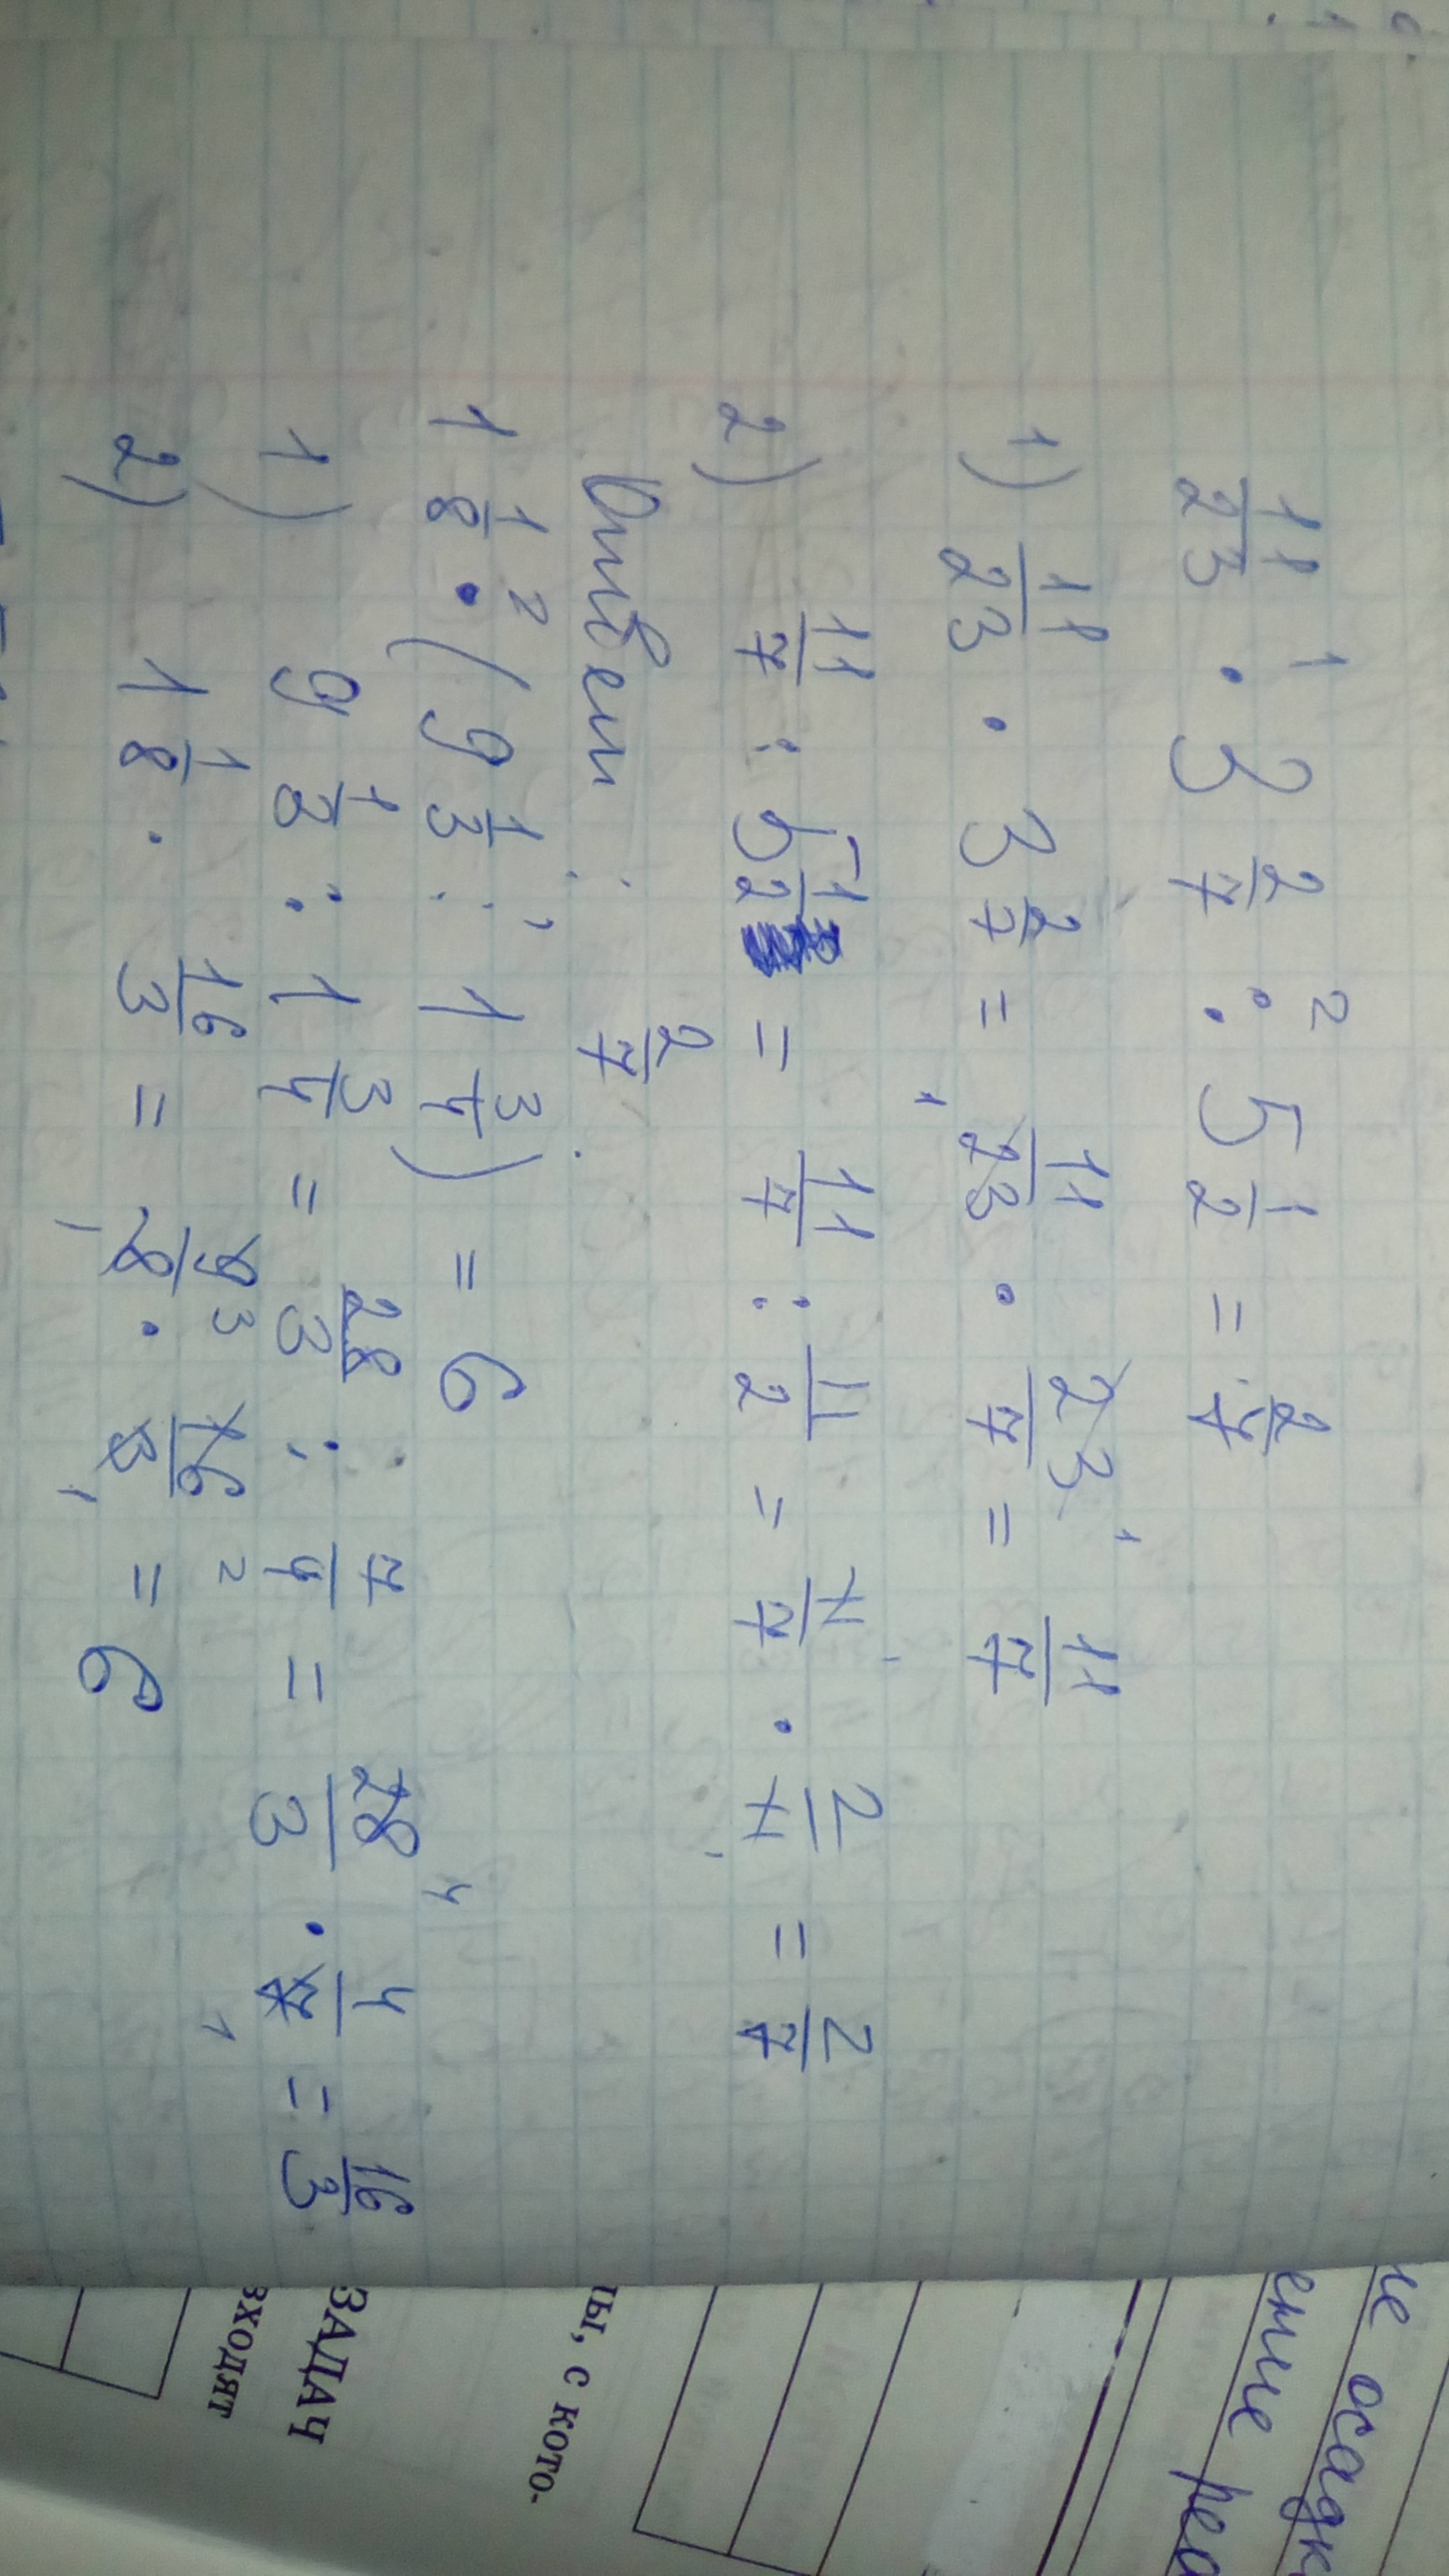 11/23 · 3 2/7 : 5 1/2 = 2/7
1) 11/23 · 3 2/7 = 11/23 · 23/7 = 11/7
2) 11/7 : 5 1/2 = 11/7 : 11/2 = 11/7 · 2/11 = 2/7
Ответ : 2/7.
1 1/8 · (9 1/3 : 1 3/4) = 6
1) 9 1/3 : 1 3/4 = 28/3 : 7/4 = 28/3 · 4/7 = 16/3
2) 1 1/8 · 16/3 = 9/8 · 16/3 = 6
ты, с кото-
ЗАДАЧ
входят
ие осадк
ение реа